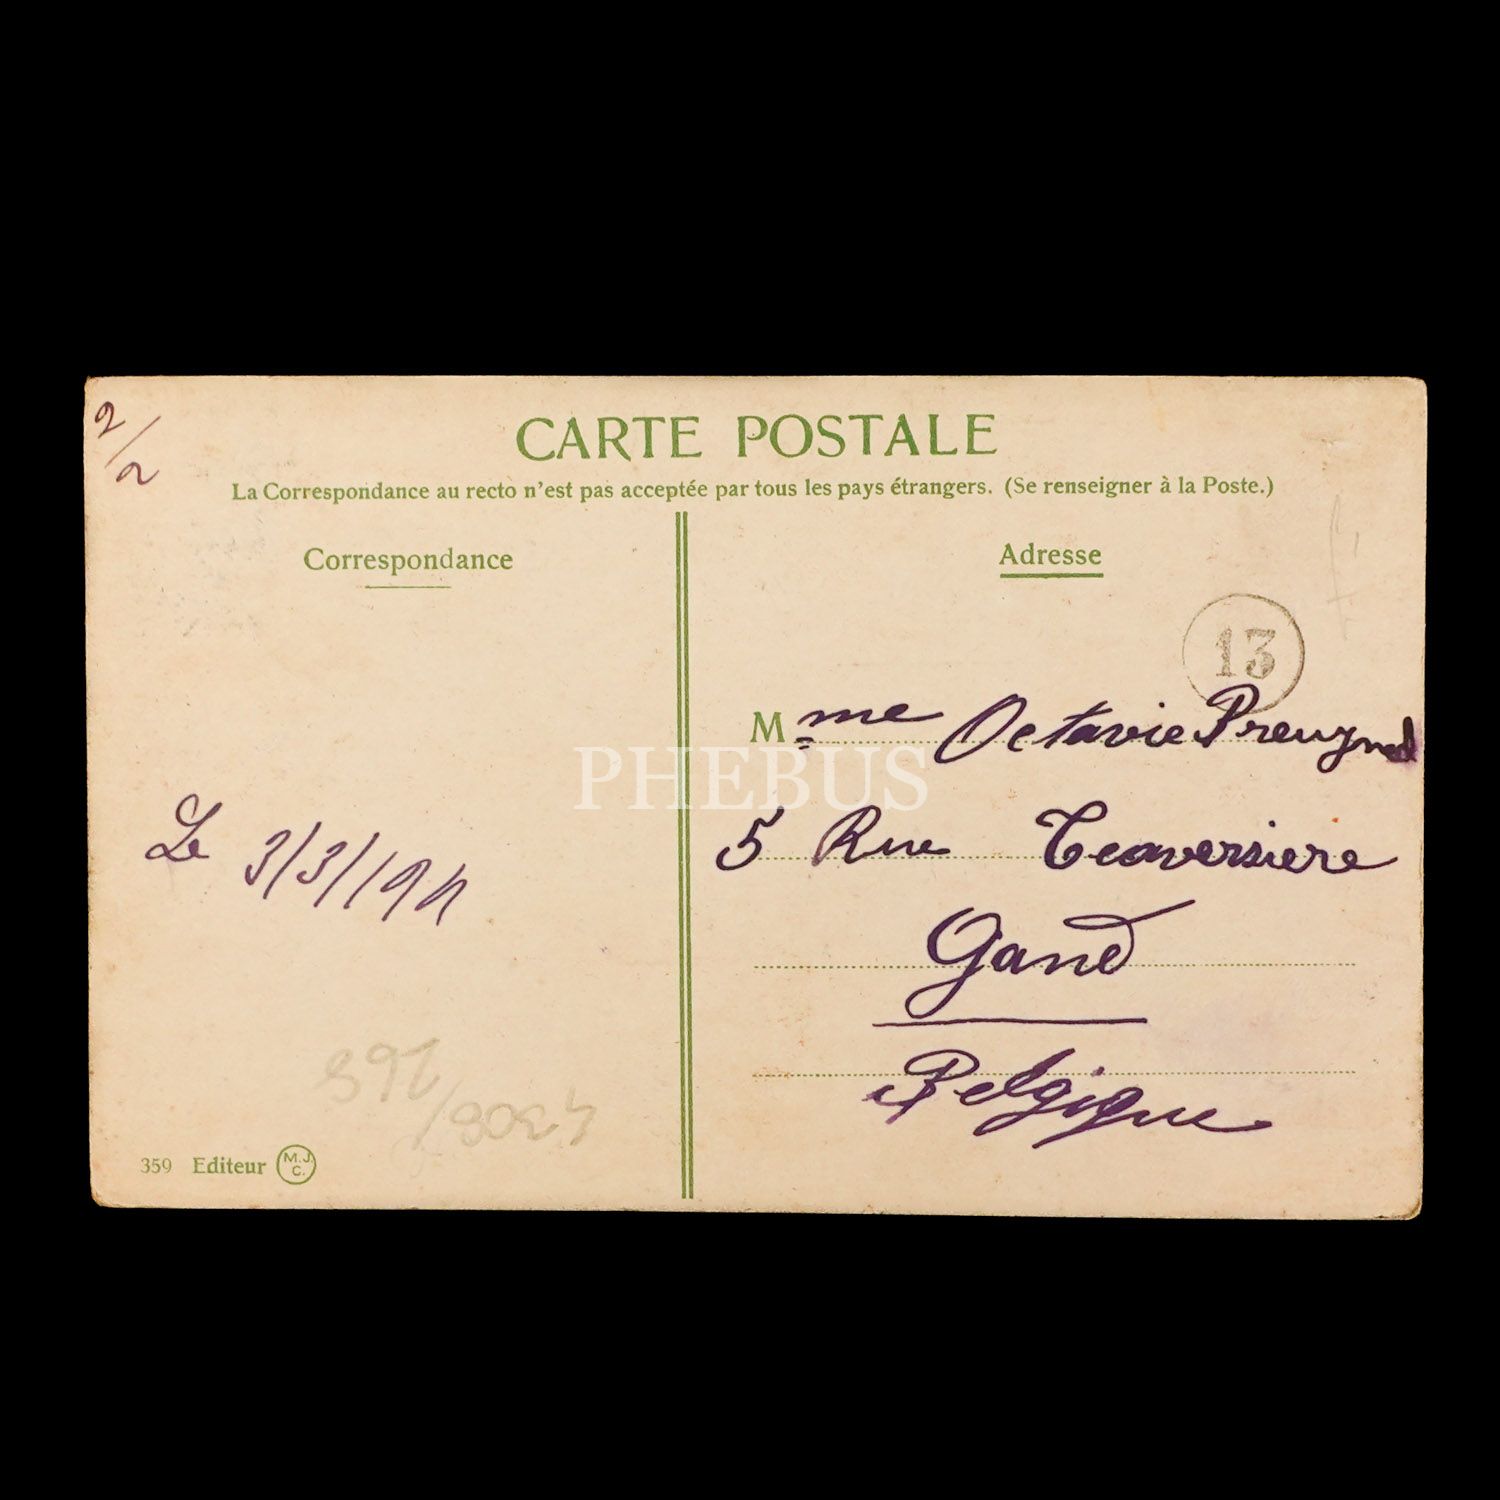 2/2
CARTE POSTALE
La Correspondance au recto n'est pas acceptée par tous les pays étrangers. (Se renseigner à la Poste.)
Correspondance
Adresse
13
Mme Octavie
PHEBUS
5 Rue Traversiere
Gand
Belgique
Le 3/3/1911
359 Editeur M.J.C.